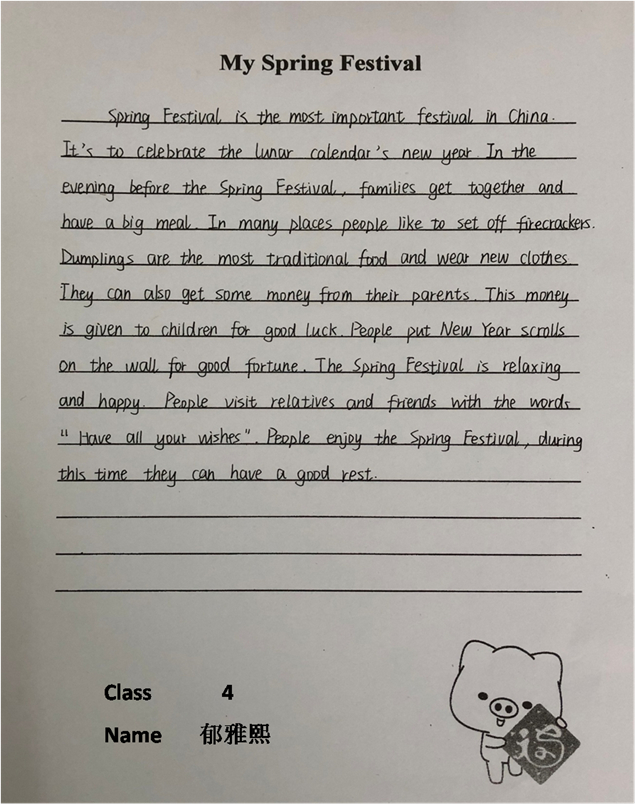 My Spring Festival
Spring Festival is the most important festival in China.
It's to celebrate the lunar calendar's new year. In the
evening before the Spring Festival, families get together and
have a big meal. In many places people like to set off firecrackers.
Dumplings are the most traditional food and wear new clothes.
They can also get some money from their parents. This money
is given to children for good luck. People put New Year scrolls
on the wall for good fortune. The Spring Festival is relaxing
and happy. People visit relatives and friends with the words
"Have all your wishes". People enjoy the Spring Festival, during
this time they can have a good rest.
Class 4
Name 郁雅熙
福